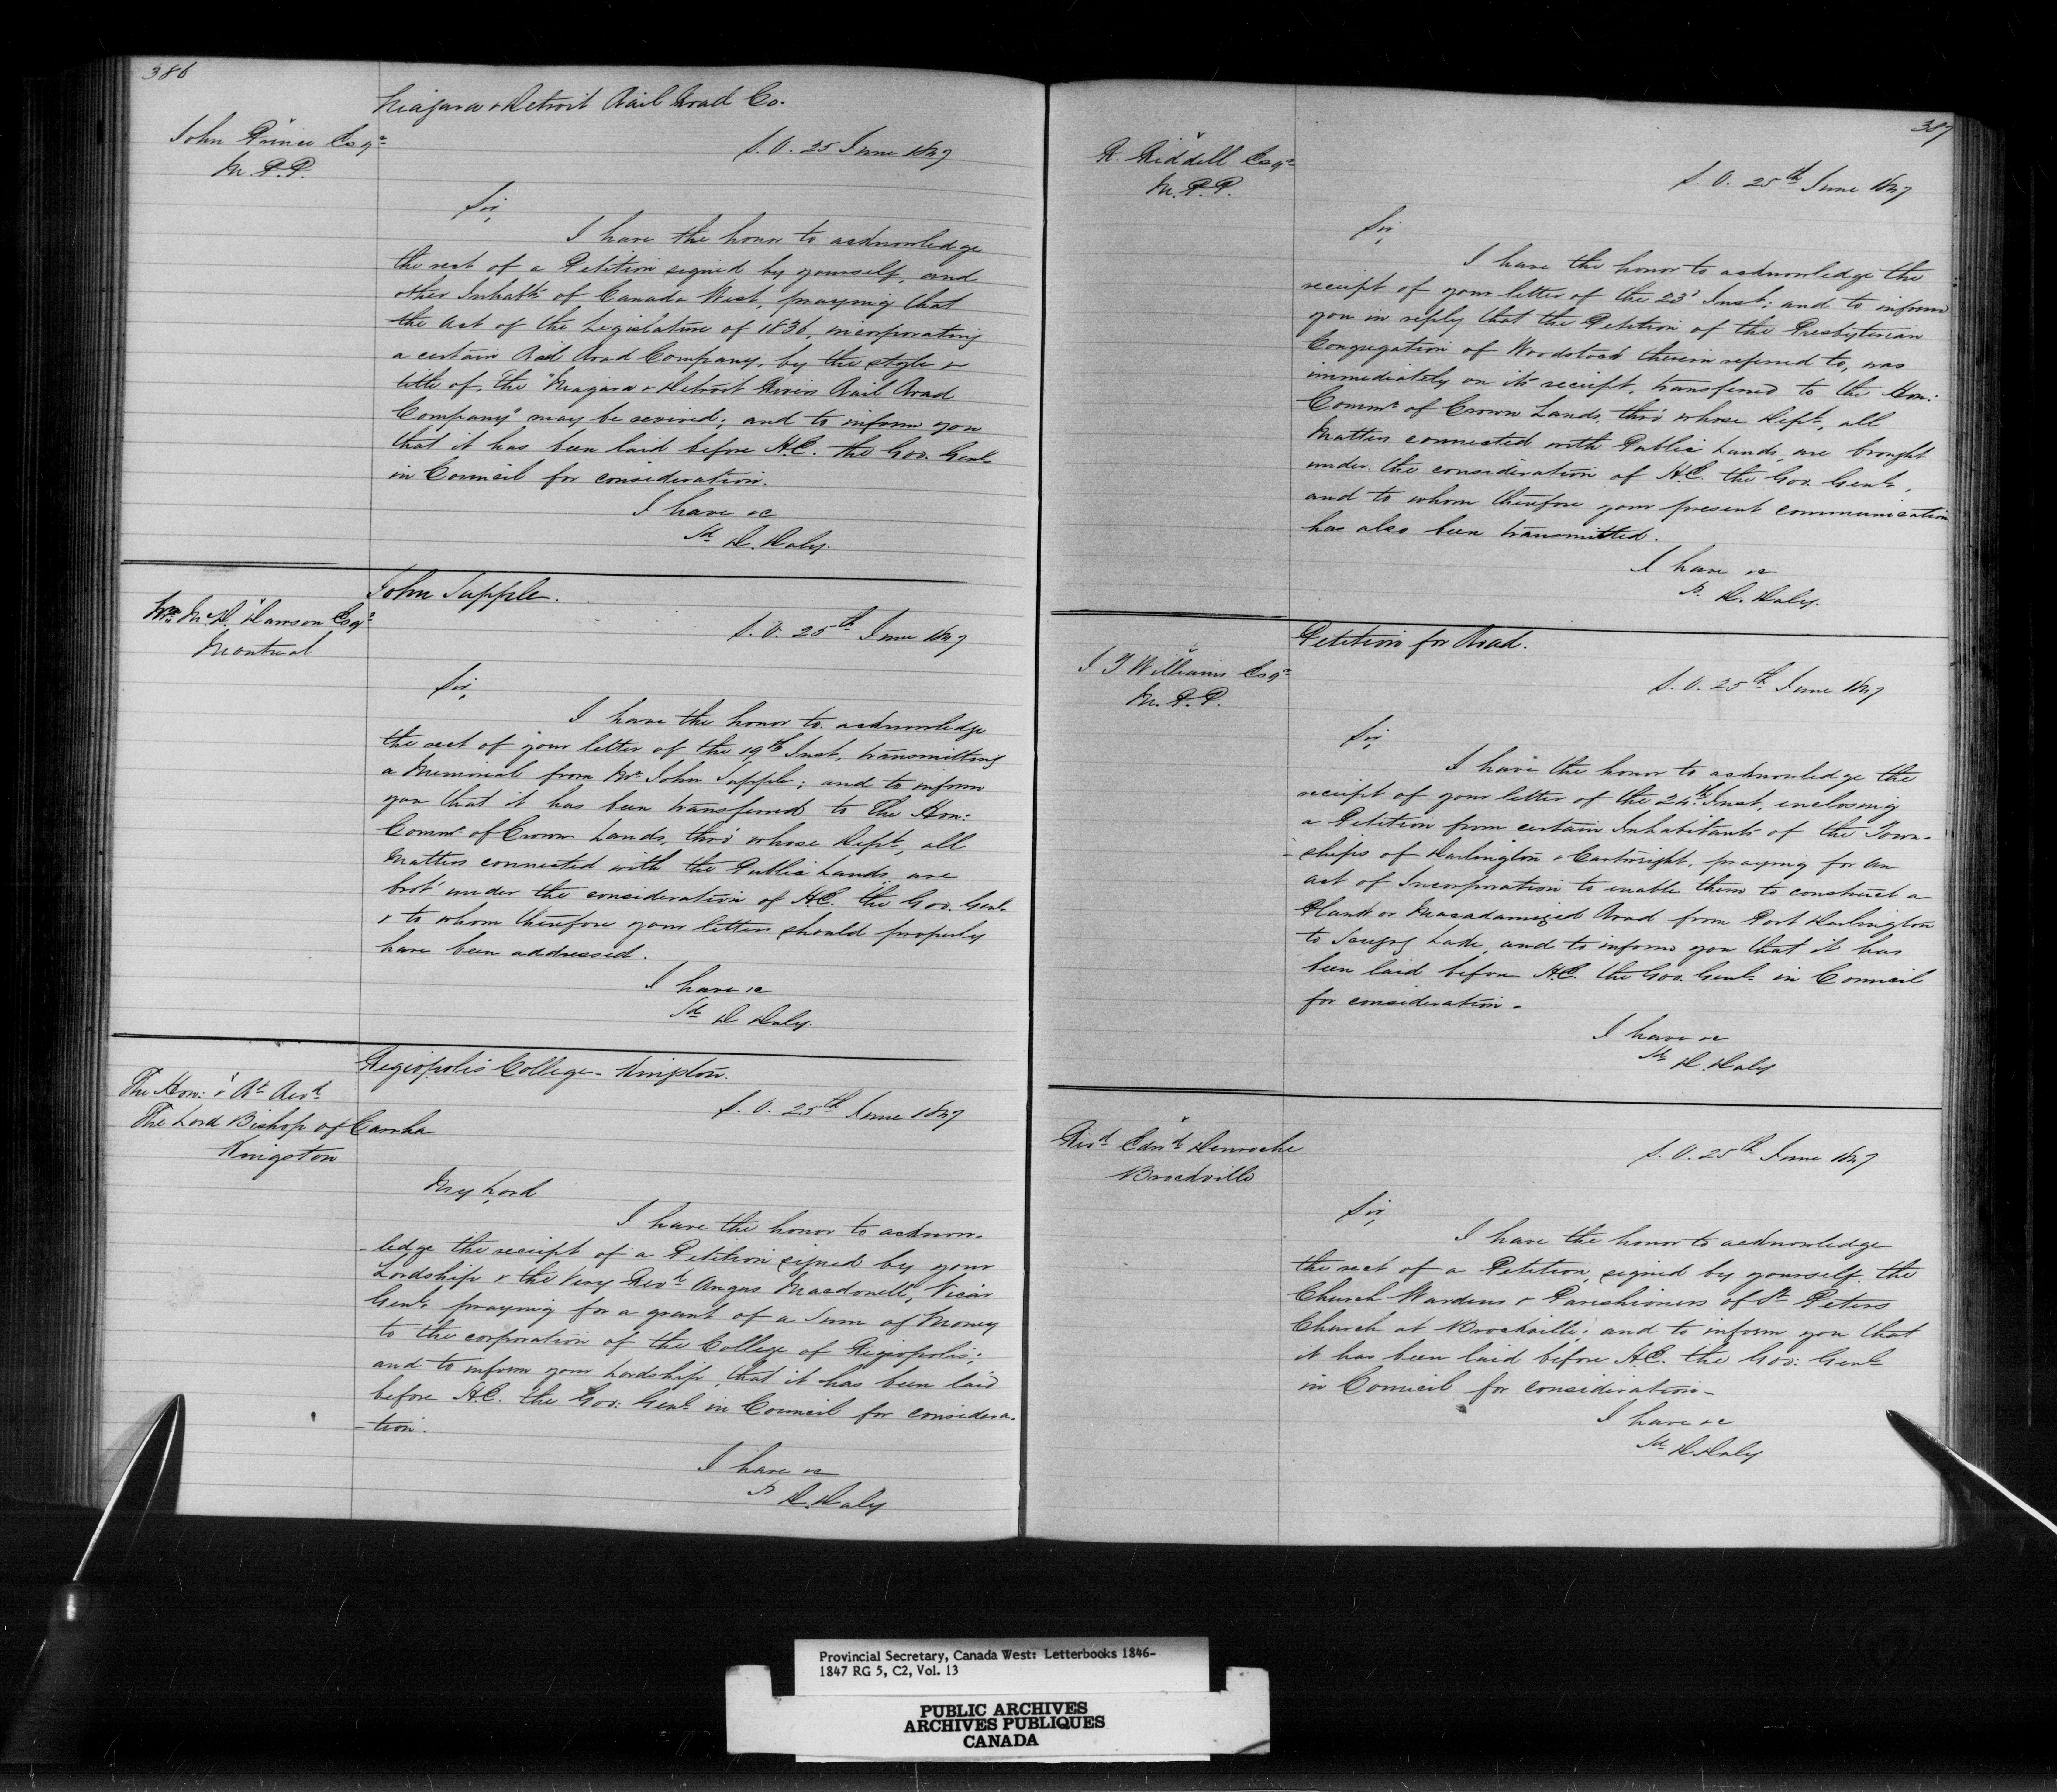 386
Niagara & Detroit Rail Road Co.
John Prince Esqre
M.P.P.
S.O. 25 June 1847
Sir,
I have the honor to acknowledge
the rect of a Petition signed by yourself, and
other Inhabts of Canada West, praying that
the Act of the Legislature of 1836, incorporating
a certain Rail Road Company, by the style &
title of, The "Niagara & Detroit Rivers Rail Road
Company" may be revived; and to inform you
that it has been laid before H.E. the Gov. Genl
in Council for consideration.
I have &c
Sd D. Daly.
John Supple.
Wm McD. Dawson Esqre
Montreal
S.O. 25th June 1847
Sir,
I have the honor to acknowledge
the rect of your letter of the 19th Inst, transmitting
a Memorial from Mr John Supple; and to inform
you that it has been transferred to The Hon:
Commr of Crown Lands, thro' whose Dept, all
Matters connected with the Public Lands are
brot' under the consideration of H.E. the Gov. Genl
& to whom therefore your letters should properly
have been addressed.
I have &c
Sd D Daly.
Regiopolis College - Kingston.
The Hon: & Rt Revd
The Lord Bishop of Carrha
Kingston
S.O. 25th June 1847
My Lord
I have the honor to acknow-
-ledge the receipt of a Petition signed by your
Lordship & the Very Revd Angus Macdonell, Vicar
Genl, praying for a grant of a Sum of Money
to the corporation of the College of Regiopolis;
and to inform your Lordship that it has been laid
before H.E. the Gov: Genl in Council for considera-
-tion.
I have &c
S. D. Daly
387
R. Riddell Esqre
M.P.P.
S.O. 25th June 1847
Sir,
I have the honor to acknowledge the
receipt of your letter of the 23d Inst; and to inform
you in reply that the Petition of the Presbyterian
Congregation of Woodstock therein referred to, was
immediately on its receipt, transferred to the Hon:
Commr of Crown Lands, thro' whose Dept, all
Matters connected with Public Lands, are brought
under the consideration of H.E. the Gov. Genl,
and to whom therefore your present communication
has also been transmitted.
I have &c
S. D. Daly.
Petition for Road.
J T Williams Esqre
M.P.P.
S.O. 25th June 1847
Sir,
I have the honor to acknowledge the
receipt of your letter of the 24th Inst, enclosing
a Petition from certain Inhabitants of the Town-
-ships of Darlington & Cartwright, praying for an
act of Incorporation to enable them to construct a
Plank or Macadamized Road from Port Darlington
to Scugog Lake, and to inform you that it has
been laid before H.E. the Gov. Genl in Council
for consideration -
I have &c
Sd D. Daly
Revd Edwd Denroche
Brockville
S.O. 25th June 1847
Sir,
I have the honor to acknowledge
the rect of a Petition, signed by yourself the
Church Wardens & Parishioners of St Peters
Church at Brockville; and to inform you that
it has been laid before H.E. the Gov: Genl
in Council for consideration -
I have &c
Sd D. Daly
Provincial Secretary, Canada West: Letterbooks 1846-
1847 RG 5, C2, Vol. 13
PUBLIC ARCHIVES
ARCHIVES PUBLIQUES
CANADA